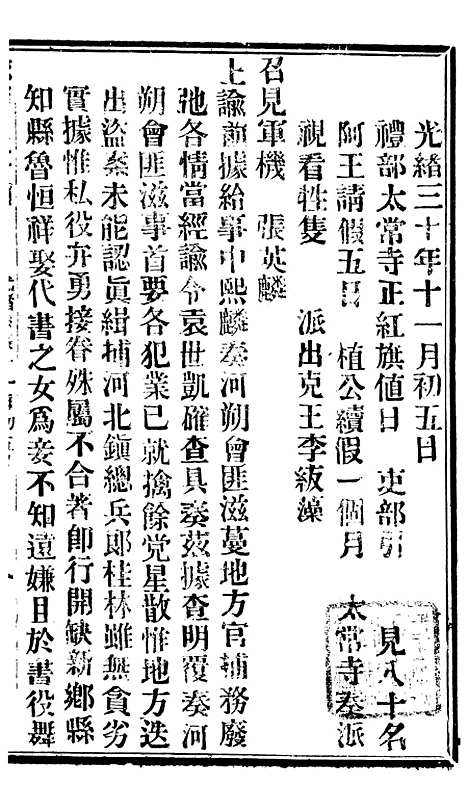 光緒三十年十一月初五日
禮部太常寺正紅旗值日　吏部引　見八十名
阿王請假五日　植公續假一個月　太常寺奏派
視看牲隻　派出克王李紱藻
召見軍機　張英麟
上諭前據給事中熙麟奏河朔會匪滋蔓地方官捕務廢
弛各情當經諭令袁世凱確查具奏茲據查明覆奏河
朔會匪滋事首要各犯業已就擒餘党星散惟地方迭
出盜案未能認眞緝捕河北鎮總兵郎桂林雖無貪劣
實據惟私役弁勇接眷殊屬不合著卽行開缺新鄉縣
知縣魯恒祥娶代書之女爲妾不知遠嫌且於書役舞